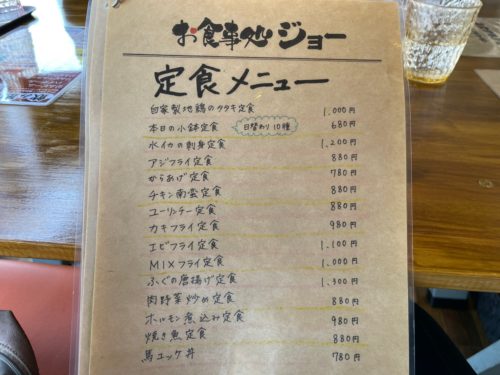 お食事処 ジョー
定食メニュー
自家製地鶏のタタキ定食 1,000円
本日の小鉢定食 日替わり10種 680円
水イカの刺身定食 1,200円
アジフライ定食 880円
からあげ定食 780円
チキン南蛮定食 880円
ユーリンチー定食 880円
カキフライ定食 980円
エビフライ定食 1,100円
MIXフライ定食 1,000円
ふぐの唐揚げ定食 1,300円
肉野菜炒め定食 880円
ホルモン煮込み定食 980円
焼き魚定食 880円
馬ユッケ丼 780円